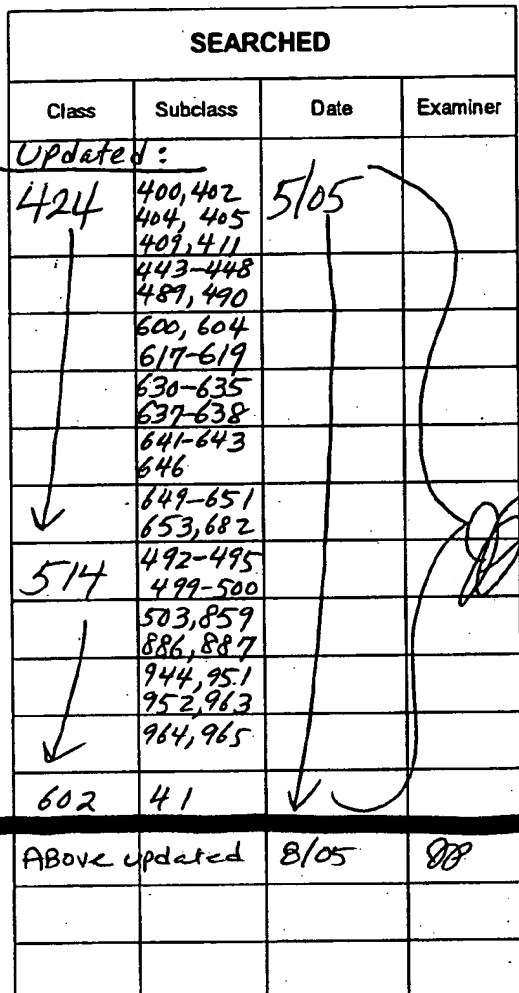 SEARCHED
Class Subclass Date Examiner
Updated:
424 400, 402 5/05
404, 405
409, 411
443-448
489, 490
600, 604
617-619
630-635
637-638
641-643
646
649-651
653, 682
514 492-495
499-500
503, 859
886, 887
944, 951
952, 963
964, 965
602 41
ABove updated 8/05